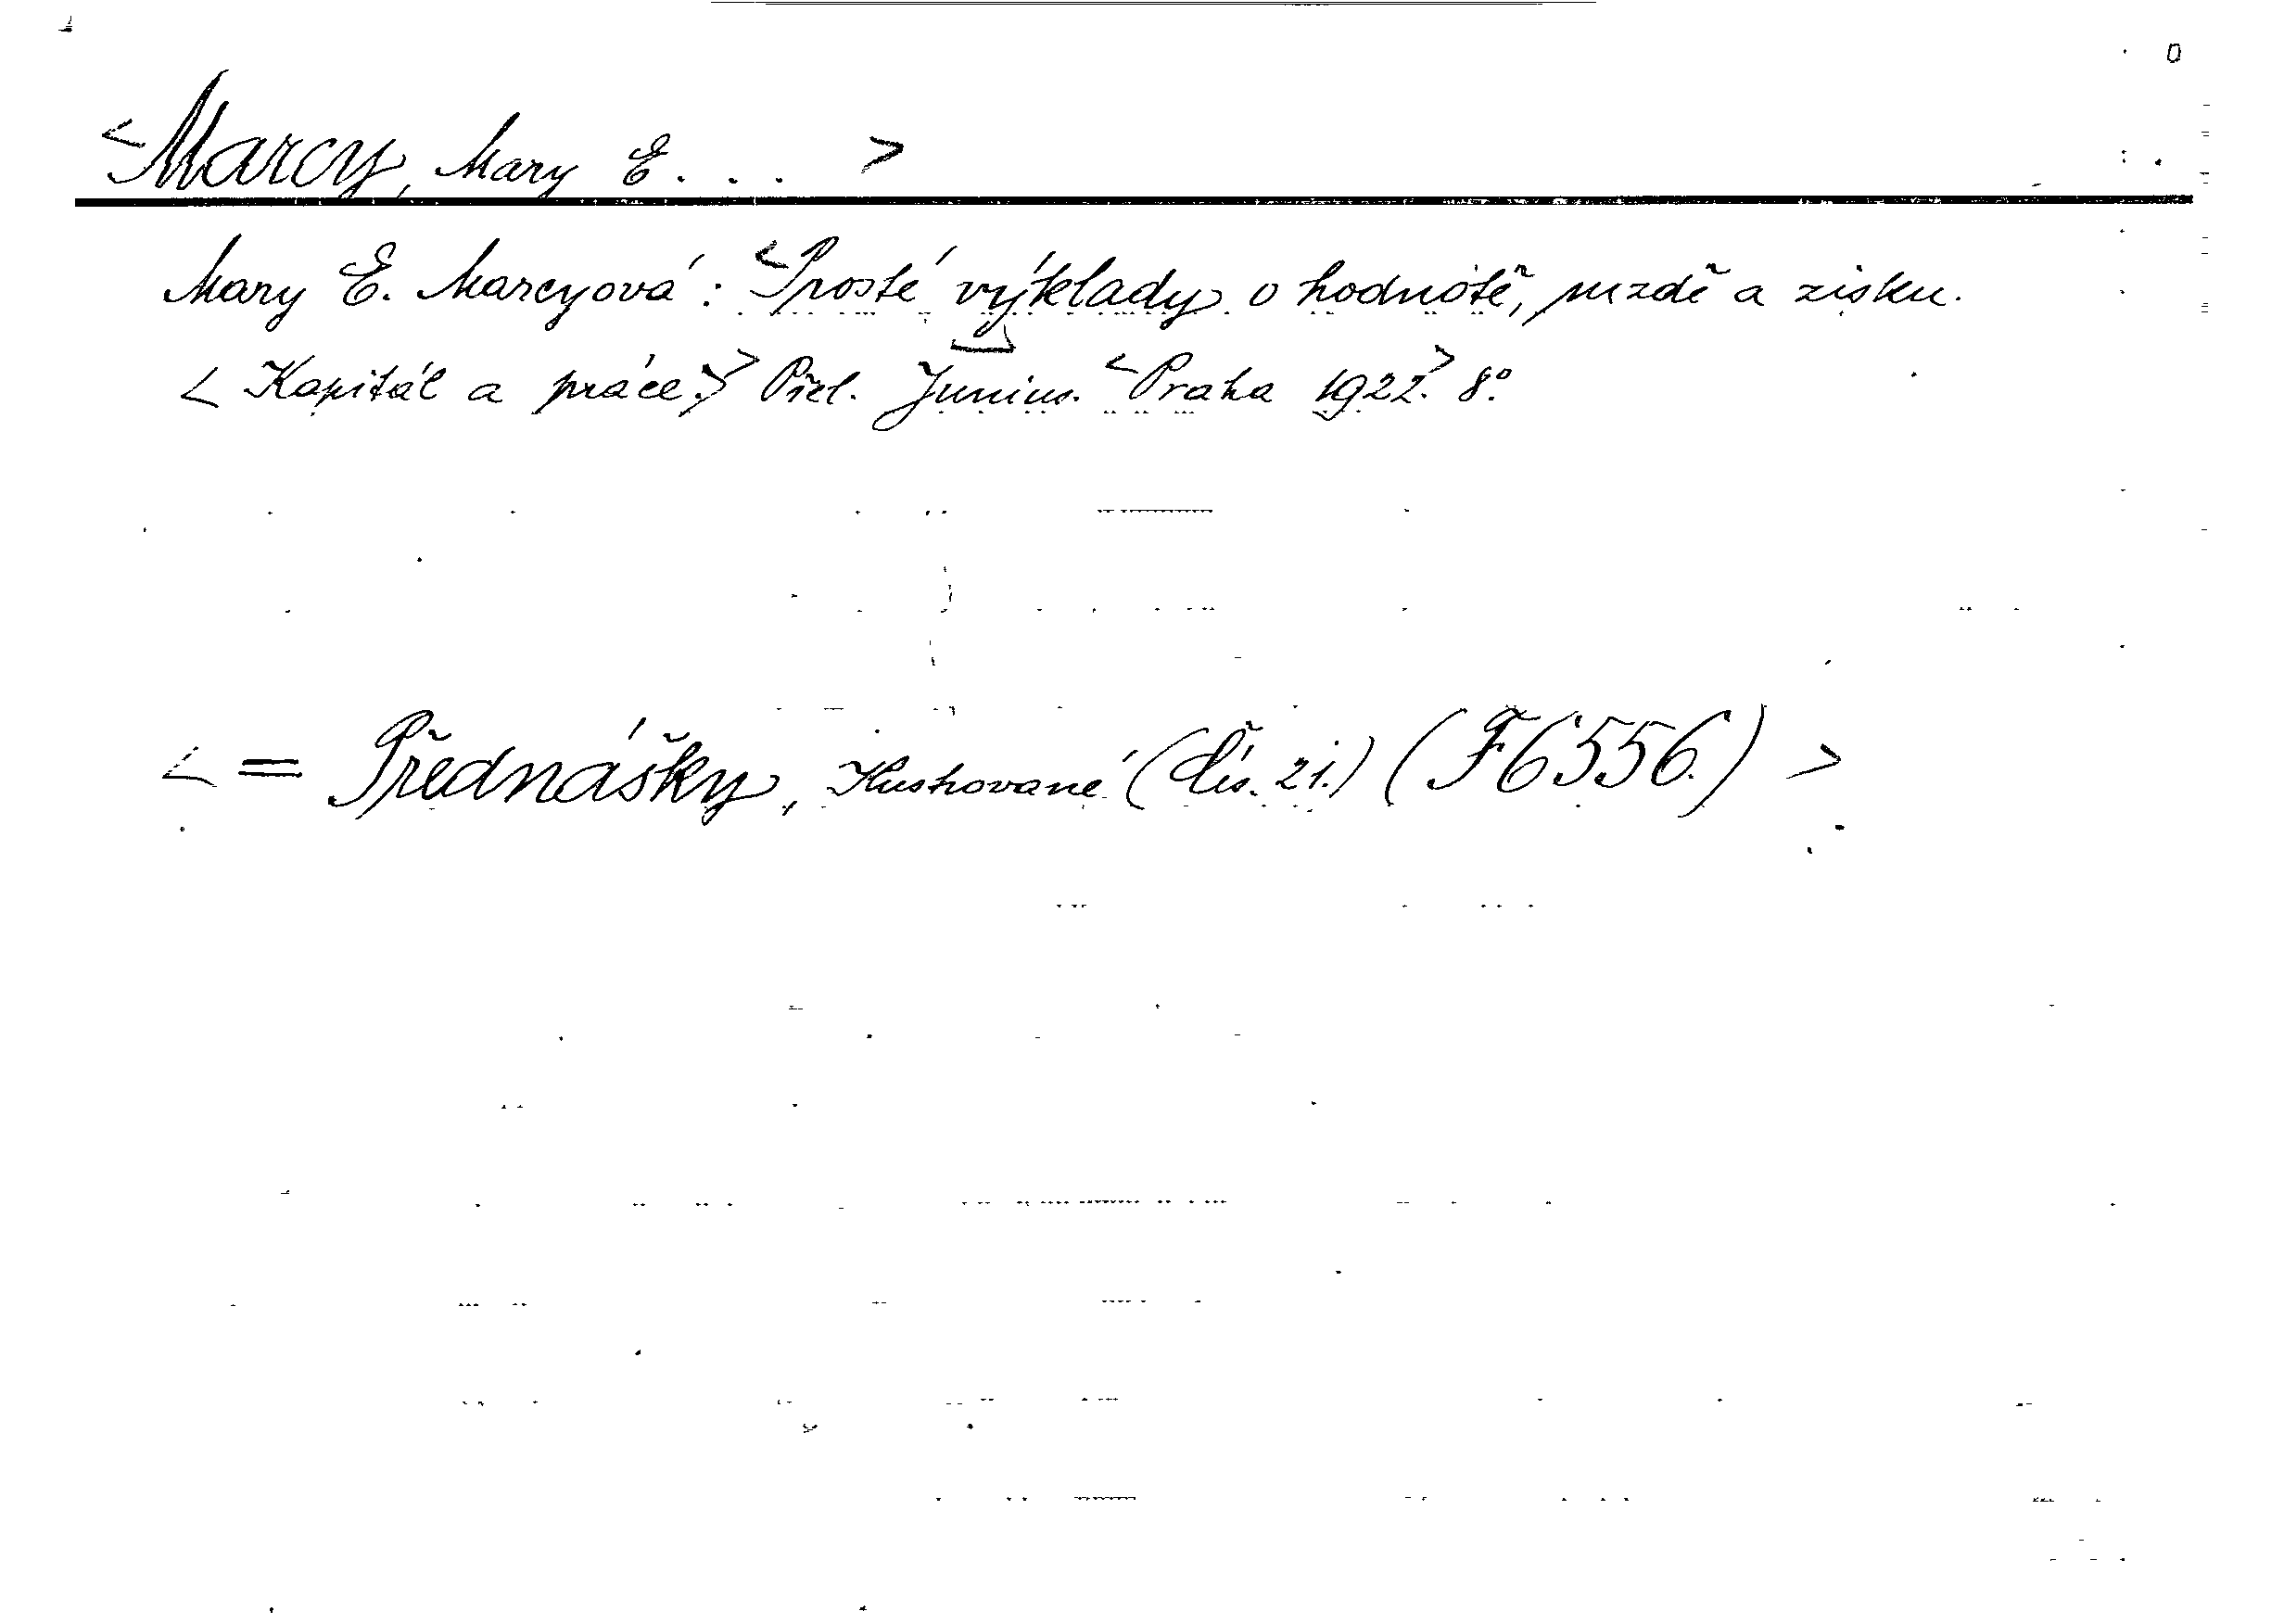 <Marcy, Mary E. . . >
Mary E. Marcyová: <Prosté výklady o hodnotě, mzdě a zisku.
<Kapitál a práce.> Přel. Junius. <Praha 1922.> 8°.
<= Přednášky, Ilustrované (Čís. 21.) (F6556.) >